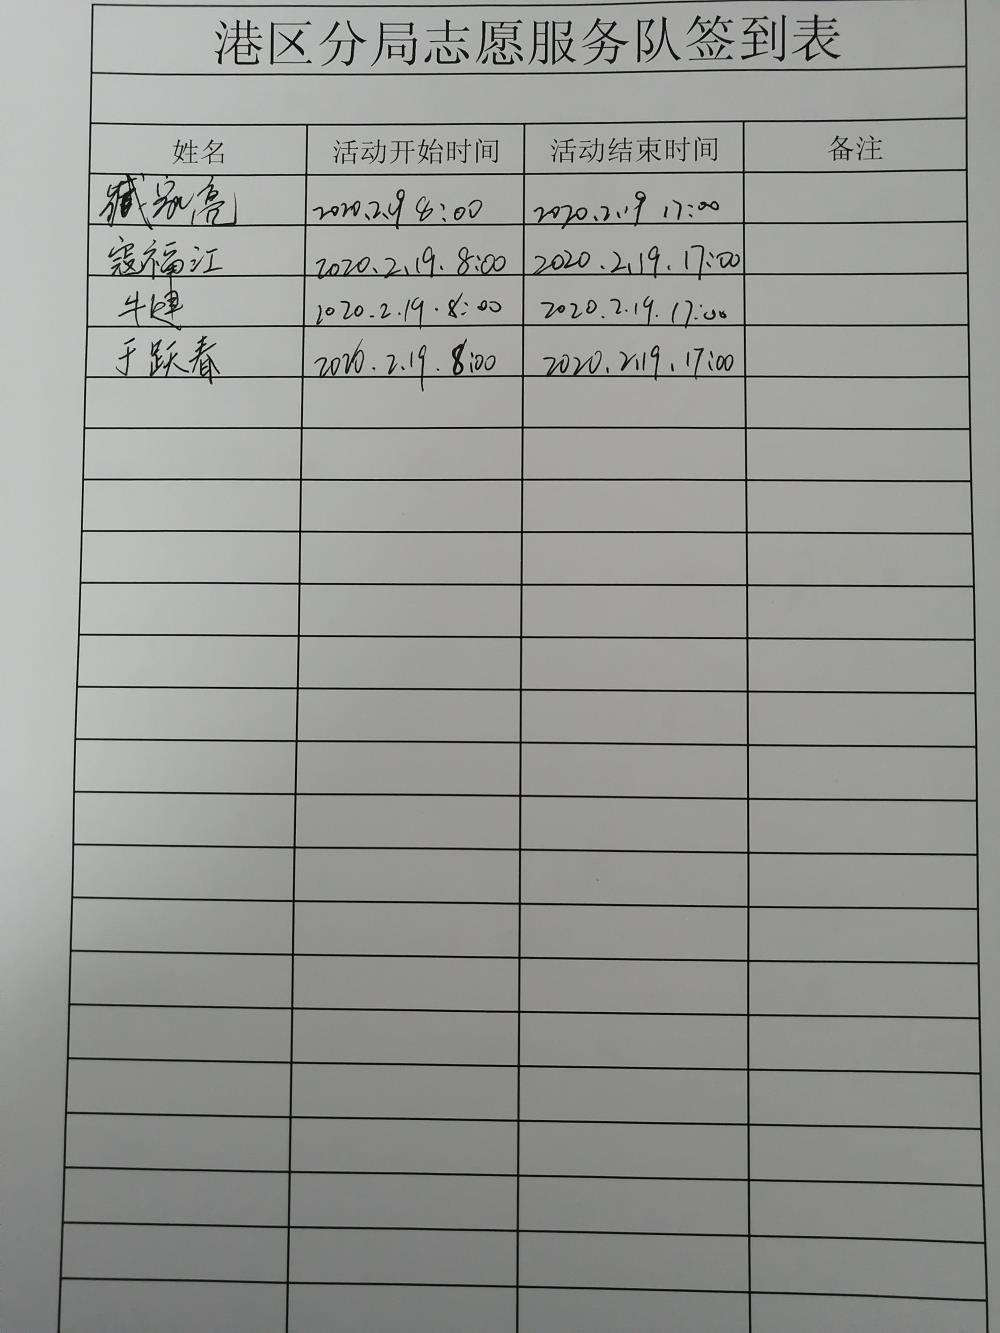 港区分局志愿服务队签到表
姓名 活动开始时间 活动结束时间 备注
臧家亮 2020.2.19 8:00 2020.2.19 17:00
寇福江 2020.2.19. 8:00 2020.2.19.17:00
牛健 2020.2.19.8:00 2020.2.19.17:00
于跃春 2020.2.19.8:00 2020.2.19.17:00